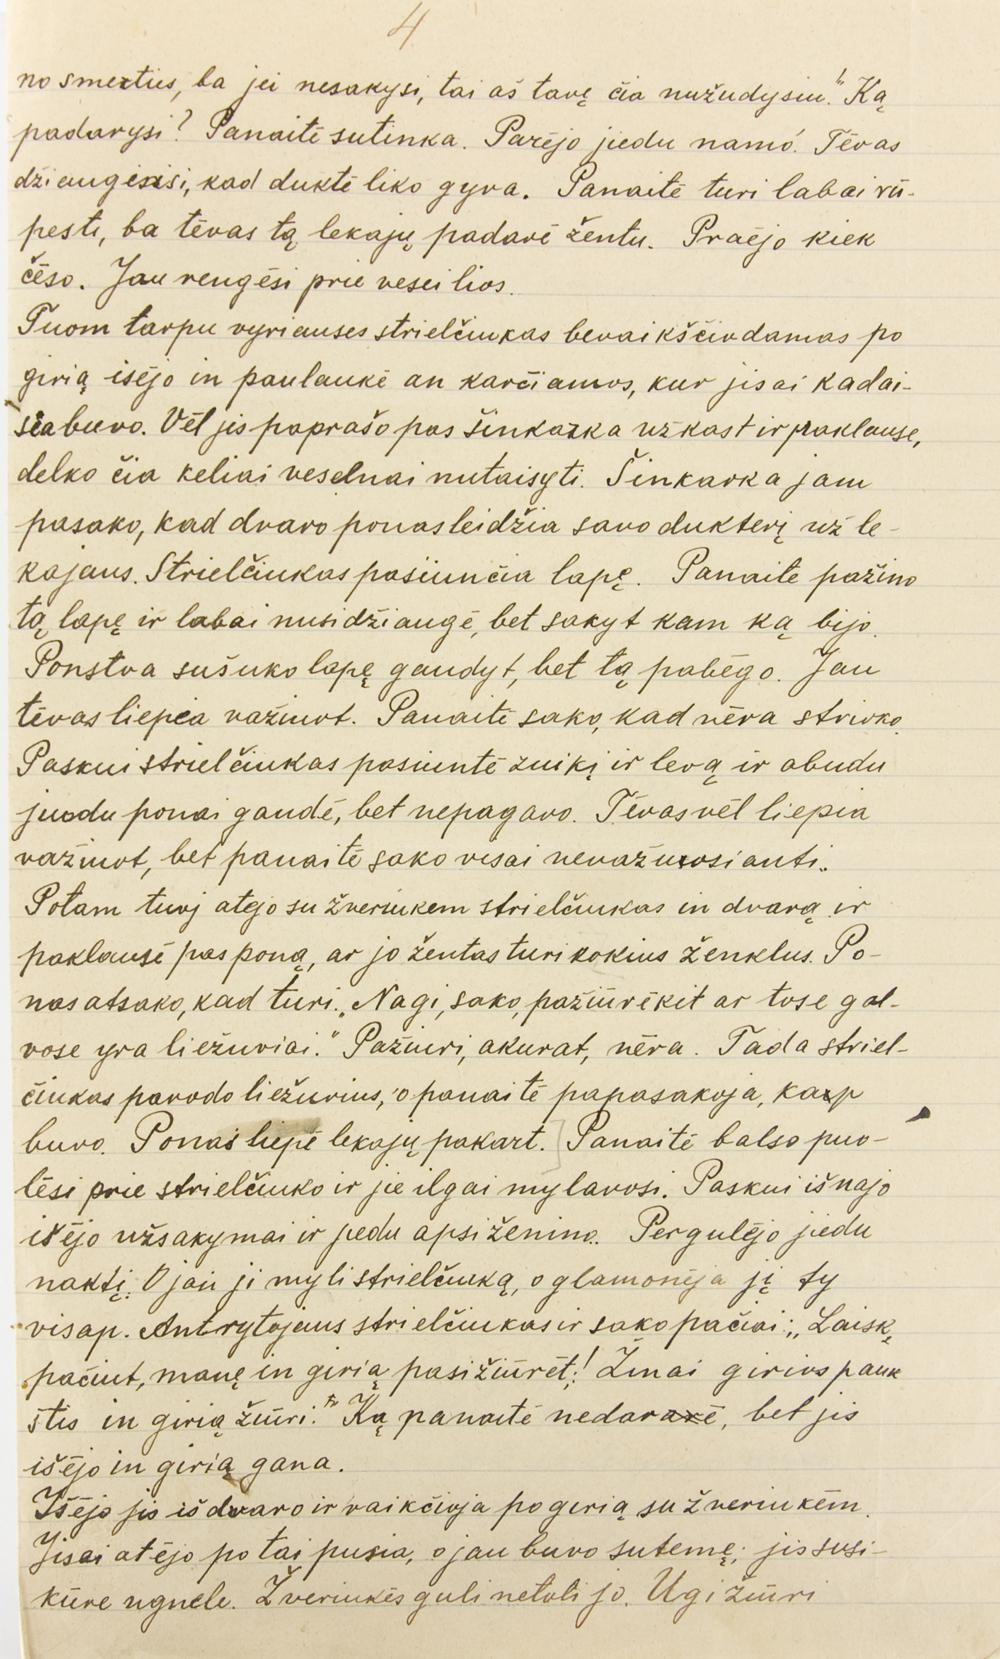 4
no smerties, ba jei nesakysi, tai aš tavę čia nužudysiu!" Ką
padarysi? Panaitė sutinka. Parėjo jiedu namo. Tėvas
džiaugėsisi, kad duktė liko gyva. Panaitė turi labai rū-
pesti, ba tėvas tą lekajų padarė žentu. Praėjo kiek
čėso. Jau rengėsi prie veseilios.
Tuom tarpu vyriauses strielčiukas bevaikščiodamas po
girią isėjo in paulaukė an karčiamos, kur jisai kadai-
sia buvo. Vėl jis paprašo pas šinkarka užkast ir paklause,
delko čia keliai veselnai nutaisyti. Šinkarka jam
pasako, kad dvaro ponas leidžia savo dukterį už le-
kajaus. Strielčiukas pasiunčia lapę. Panaite pažino
tą lapę ir labai nusidžiaugė, bet sakyt kam ką bijo.
Ponstva sušuko lapę gaudyt, bet tą pabėgo. Jau
tėvas liepia važiuot. Panaitė sako, kad nėra strioko.
Paskui strielčiukas pasiuntė zuikį ir levą ir abudu
juodu ponai gaudė, bet nepagavo. Tėvas vėl liepia
važiuot, bet panaitė sako visai nevažiuosianti.
Potam tuoj atejo su žveriukem strielčiukas in dvarą ir
paklausė pas poną, ar jo žentas turi kokius ženklus. Po-
nas atsako, kad turi. „Nagi, sako, pažiūrėkit ar tose gal-
vose yra liežuviai." Pažiuri, akurat, nėra. Tada striel-
čiukas parodo liežuvius, o panaitė papasakoja, kaip
buvo. Ponas liepė lekajų pakart. Panaitė balso puo-
lėsi prie strielčiuko ir jie ilgai mylavosi. Paskui išnajo
išėjo užsakymai ir jiedu apsiženino. Pergulėjo jiedu
naktį. O jau ji myli strielčiuką, o glamonėja jį ty
visap. Ant rytojaus strielčiukas ir sako pačiai: „Laisk,
pačiut, manę in girią pasižiūrėt! Žinai girios pauk
štis in girią žiūri." Ką panaitė nedararė, bet jis
išėjo in girią gana.
Išėjo jis iš dvaro ir vaikčioja po girią su žveriukėm.
Jisai atėjo po tai pusia, o jau buvo sutemę; jis susi-
kūre ugnele. Žveriukės guli netoli jo. Ugi žiūri